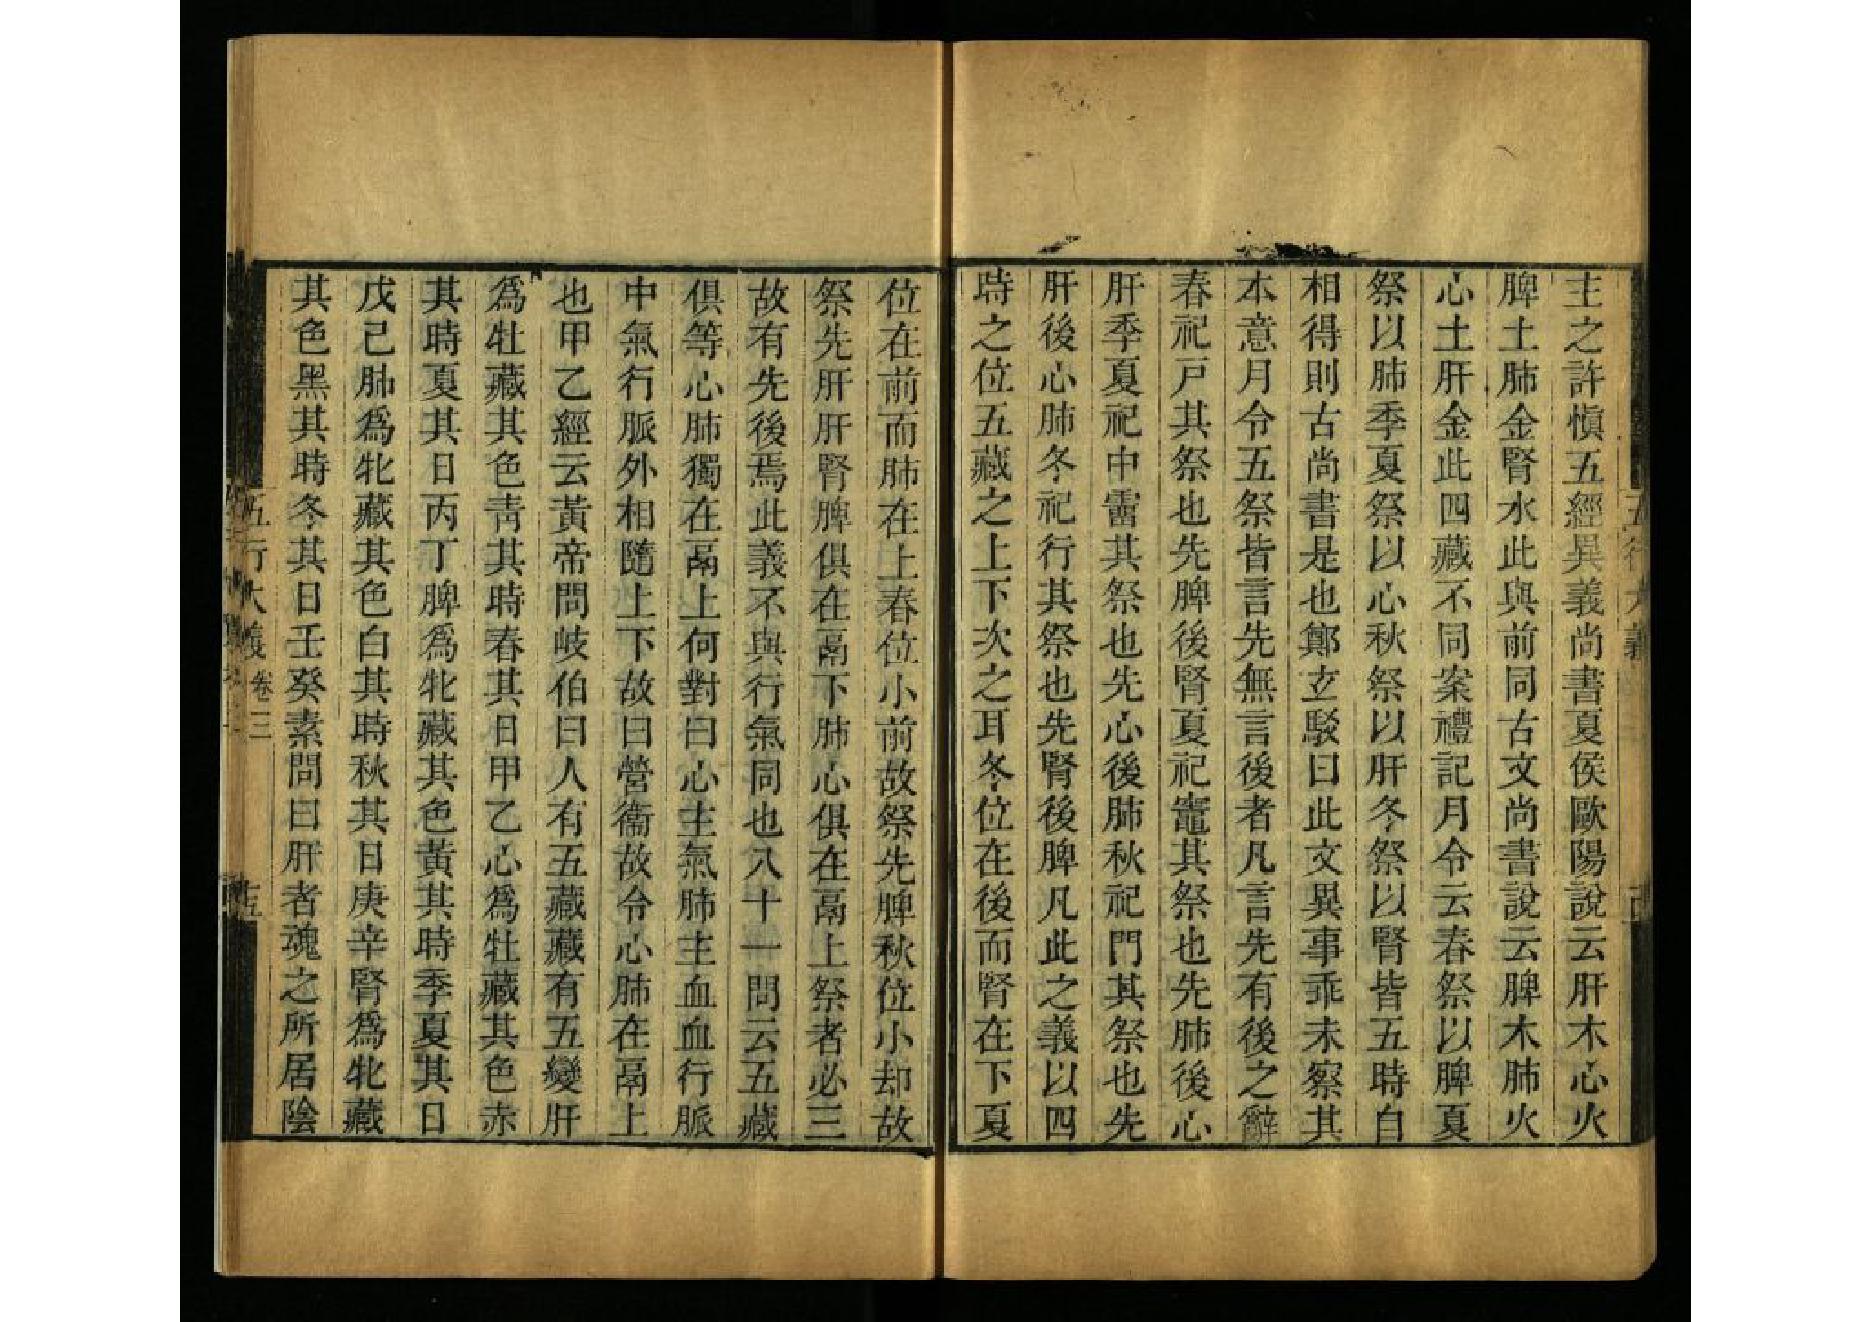 主之許愼五經異義尚書夏侯歐陽說云肝木心火
脾土肺金腎水此與前同古文尚書說云脾木肺火
心土肝金此四藏不同案禮記月令云春祭以脾夏
祭以肺季夏祭以心秋祭以肝冬祭以腎皆五時自
相得則古尚書是也鄭玄駁曰此文異事乖未察其
本意月令五祭皆言先無言後者凡言先有後之辭
春祀戸其祭也先脾後腎夏祀竈其祭也先肺後心
肝季夏祀中霤其祭也先心後肺秋祀門其祭也先
肝後心肺冬祀行其祭也先腎後脾凡此之義以四
時之位五藏之上下次之耳冬位在後而腎在下夏
位在前而肺在上春位小前故祭先脾秋位小却故
祭先肝肝腎脾俱在鬲下肺心俱在鬲上祭者必三
故有先後焉此義不與行氣同也八十一問云五藏
俱等心肺獨在鬲上何對曰心主氣肺主血血行脈
中氣行脈外相隨上下故曰營衞故令心肺在鬲上
也甲乙經云黃帝問岐伯曰人有五藏藏有五變肝
爲牡藏其色靑其時春其日甲乙心爲牡藏其色赤
其時夏其日丙丁脾爲牝藏其色黃其時季夏其日
戊己肺爲牝藏其色白其時秋其日庚辛腎爲牝藏
其色黑其時冬其日壬癸素問曰肝者魂之所居陰
五行大義 卷三 十五